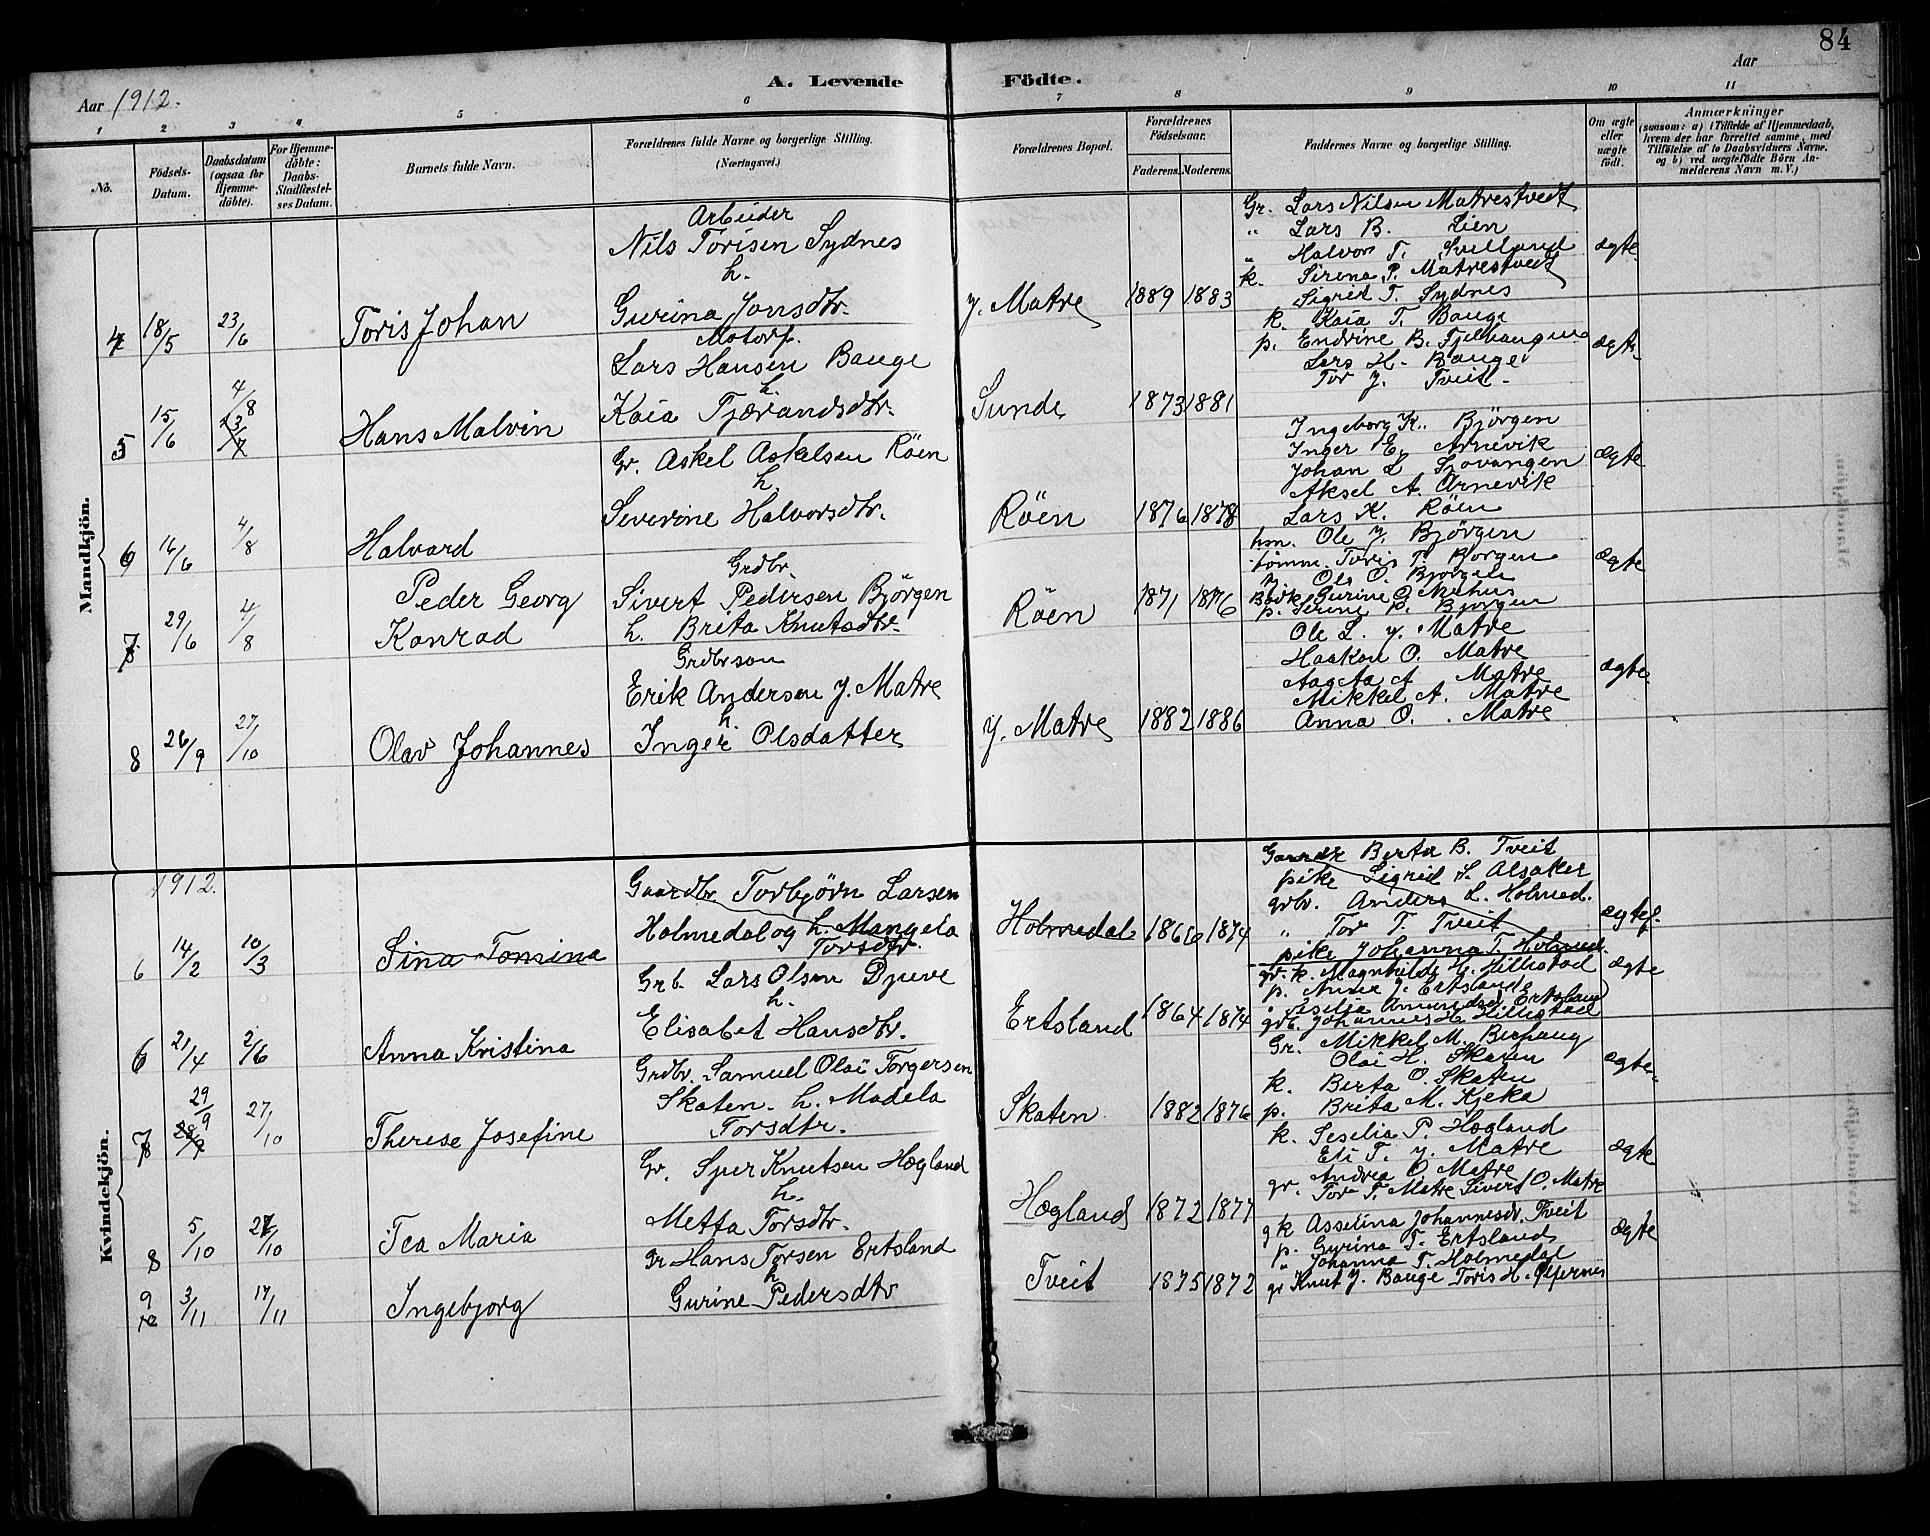 84
A. Levende Födte.
Aar 1912.
Aar
1 2 3 4 5 6 7 8 9 10 11
No.
Födsels-Datum.
Daabsdatum (ogsaa for Hjemmedöbte).
For Hjemmedöbte: Daabs-Stadfæstelses Datum.
Barnets fulde Navn.
Forældrenes fulde Navne og borgerlige Stilling. (Næringsvei.)
Forældrenes Bopæl.
Forældrenes Födselsaar.
Faderens. Moderens.
Faddernes Navne og borgerlige Stilling.
Om ægte eller uægte födt.
Anmærkninger
(saasom: a) i Tilfælde af Hjemmedaab, hvem der har forrettet samme, med Tilföielse af to Daabsvidners Navne, og b) ved uægtefödte Börn Anmelderens Navn m. V.)
Mandkjön.
4 18/5 23/6 Toris Johan
Arbeider
Nils Torisen Sydnes
h.
Gurina Jonsdtr.
Y. Matre 1889 1883
Gr. Lars Nilsen Matrestvedt
" Lars B. Lien
" Halvor T.
k. Sirena P. Matrestvedt
Sigrid T. Sydnes
ægte
5 15/6 4/8 Hans Malvin
Motorf.
Lars Hansen Bauge
h.
Kaia Tjærandsdtr.
Sunde 1873 1881
k. Kaia T. Bauge
p. Endrine B.
Lars H. Bauge
Tor J. Tveit
ægte
6 16/6 4/8 Halvard
Gr. Askel Askelsen Röen
h.
Severine Halvorsdtr.
Röen 1876 1878
Ingeborg K. Björgen
Inger E. Arnevik
Johan L. Sjovangen
Aksel A. Arnevik
Lars K. Röen
ægte
7 29/6 4/8 Peder Georg
Konrad
Grdbr.
Sivert Pedersen Björgen
h. Brita Knutsdtr.
Röen 1871 1876
hm. Ole J. Björgen
tömm. Toris P. Björgen
Ole O. Björgen
Gurine O.
p. Serine P. Björgen
ægte
8 26/9 27/10 Olav Johannes
Grdbrson
Erik Andersen Y. Matre
h.
Inger Olsdatter
Y. Matre 1882 1886
Ole L. Y. Matre
Haakon O. Matre
Aagta A. Matre
Mikkel A. Matre
Anna O. Matre
ægte
Kvindekjön.
1912.
6 14/2 10/3 Sina Tomina
Gaardbr. Torbjörn Larsen
Holmedal og h. Mangela
Torsdtr.
Holmedal 1866 1874
Gaardk Berta B. Tveit
pike Sigrid S. Alsaker
grbr. Anders L. Holmed.
" Tor T. Tveit
pike Johanna T. Holmed.
ægtef.
6 21/4 2/6 Anna Kristina
Grb. Lars Olsen Djuve
h.
Elisabet Hansdtr.
Ertsland 1864 1874
gr. k. Magnhilde H. Hillestad
p. Anna J. Ertslande
Ertsland
grb. Johannes H. Hillestad
ægte
7 29/9 27/10 Therese Josefine
Grdbr. Samuel Olai Torgersen
Skaten. h. Madela
Torsdtr.
Skaten 1882 1876
Gr. Mikkel M.
Olai H. Skaten
k. Berta O. Skaten
p. Brita M. Kjeka
ægte
8 5/10 27/10 Tea Maria
Gr. Sjur Knutsen Hægland
h.
Metta Torsdtr.
Hægland 1872 1877
k. Seselia P. Hægland
Eli T. Y. Matre
Andrea O. Matre
gr. Tor T. Matre Sivert O. Matre
ægte
9 3/11 17/11 Ingebjorg
Gr Hans Torsen Ertsland
h.
Gurine Pedersdtr
Tveit 1875 1872
gk Asselina Johannesdr. Tveit
p. Gurina T. Ertsland
" Johanna T. Holmedal
gr Knut J. Bauge Toris H.
ægte